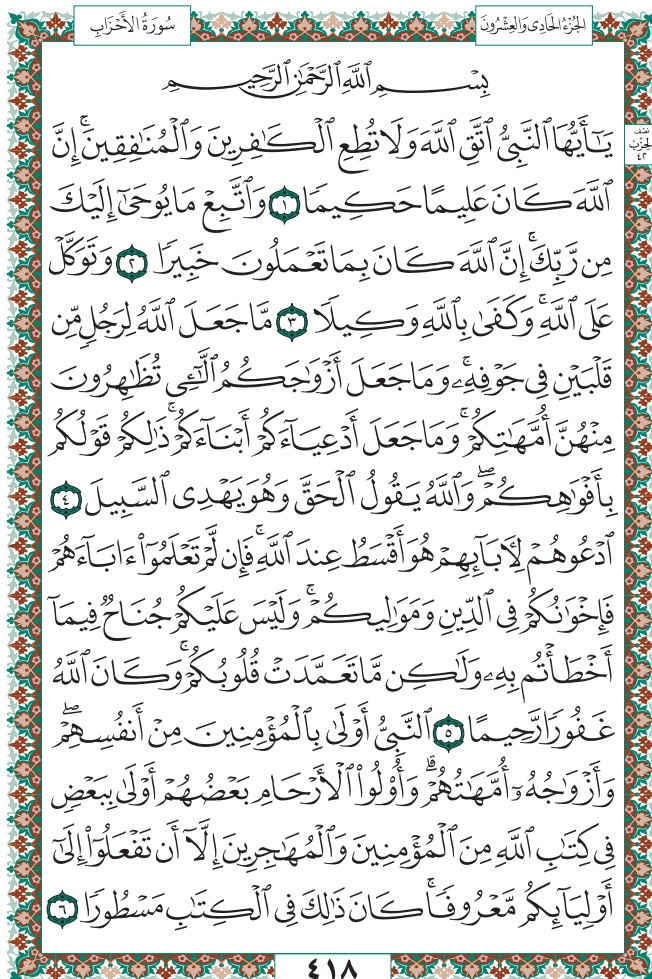 سُورَةُ الأَحْزَابِ
الجُزْءُ الحَادِى وَالعِشْرُونَ
بِسْمِ ٱللَّهِ ٱلرَّحْمَٰنِ ٱلرَّحِيمِ
يَـٰٓأَيُّهَا ٱلنَّبِىُّ ٱتَّقِ ٱللَّهَ وَلَا تُطِعِ ٱلْكَـٰفِرِينَ وَٱلْمُنَـٰفِقِينَ ۗ إِنَّ
نصف
الحزب
٤٢
ٱللَّهَ كَانَ عَلِيمًا حَكِيمًا ١ وَٱتَّبِعْ مَا يُوحَىٰٓ إِلَيْكَ
مِن رَّبِّكَ ۚ إِنَّ ٱللَّهَ كَانَ بِمَا تَعْمَلُونَ خَبِيرًا ٢ وَتَوَكَّلْ
عَلَى ٱللَّهِ ۚ وَكَفَىٰ بِٱللَّهِ وَكِيلًا ٣ مَّا جَعَلَ ٱللَّهُ لِرَجُلٍ مِّن
قَلْبَيْنِ فِى جَوْفِهِۦ ۚ وَمَا جَعَلَ أَزْوَٰجَكُمُ ٱلَّـٰٓـِٔى تُظَـٰهِرُونَ
مِنْهُنَّ أُمَّهَـٰتِكُمْ ۚ وَمَا جَعَلَ أَدْعِيَآءَكُمْ أَبْنَآءَكُمْ ۚ ذَٰلِكُمْ قَوْلُكُم
بِأَفْوَٰهِكُمْ ۖ وَٱللَّهُ يَقُولُ ٱلْحَقَّ وَهُوَ يَهْدِى ٱلسَّبِيلَ ٤
ٱدْعُوهُمْ لِـَٔابَآئِهِمْ هُوَ أَقْسَطُ عِندَ ٱللَّهِ ۚ فَإِن لَّمْ تَعْلَمُوٓا۟ ءَابَآءَهُمْ
فَإِخْوَٰنُكُمْ فِى ٱلدِّينِ وَمَوَٰلِيكُمْ ۚ وَلَيْسَ عَلَيْكُمْ جُنَاحٌ فِيمَآ
أَخْطَأْتُم بِهِۦ وَلَـٰكِن مَّا تَعَمَّدَتْ قُلُوبُكُمْ ۚ وَكَانَ ٱللَّهُ
غَفُورًا رَّحِيمًا ٥ ٱلنَّبِىُّ أَوْلَىٰ بِٱلْمُؤْمِنِينَ مِنْ أَنفُسِهِمْ ۖ
وَأَزْوَٰجُهُۥٓ أُمَّهَـٰتُهُمْ ۗ وَأُو۟لُوا۟ ٱلْأَرْحَامِ بَعْضُهُمْ أَوْلَىٰ بِبَعْضٍ
فِى كِتَـٰبِ ٱللَّهِ مِنَ ٱلْمُؤْمِنِينَ وَٱلْمُهَـٰجِرِينَ إِلَّآ أَن تَفْعَلُوٓا۟ إِلَىٰٓ
أَوْلِيَآئِكُم مَّعْرُوفًا ۚ كَانَ ذَٰلِكَ فِى ٱلْكِتَـٰبِ مَسْطُورًا ٦
٤١٨